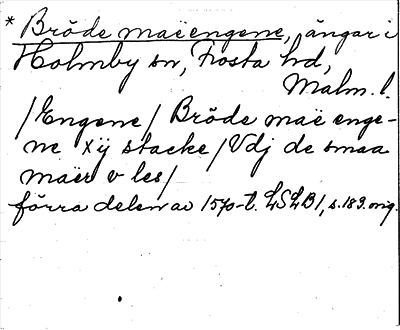 * Bröde maëengene, ängar i
Holmby sn, Frosta hd,
Malm. l.
/Engene/ Bröde maë enge-
ne xij stacke / Vdj de smaa
maër v les/
förra delen av 1570-t. LSLB 1, s. 189. orig.